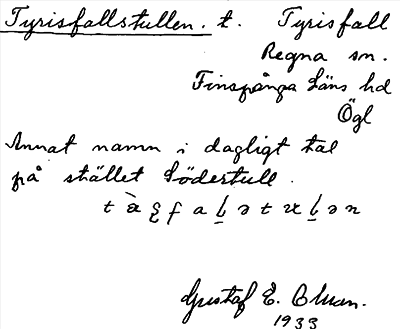 Tyrisfallstullen. t. Tyrisfall
Regna sn.
Finspånga läns hd
Ögl
Annat namn i dagligt tal
på stället Södertull.
Gustaf E.
1933